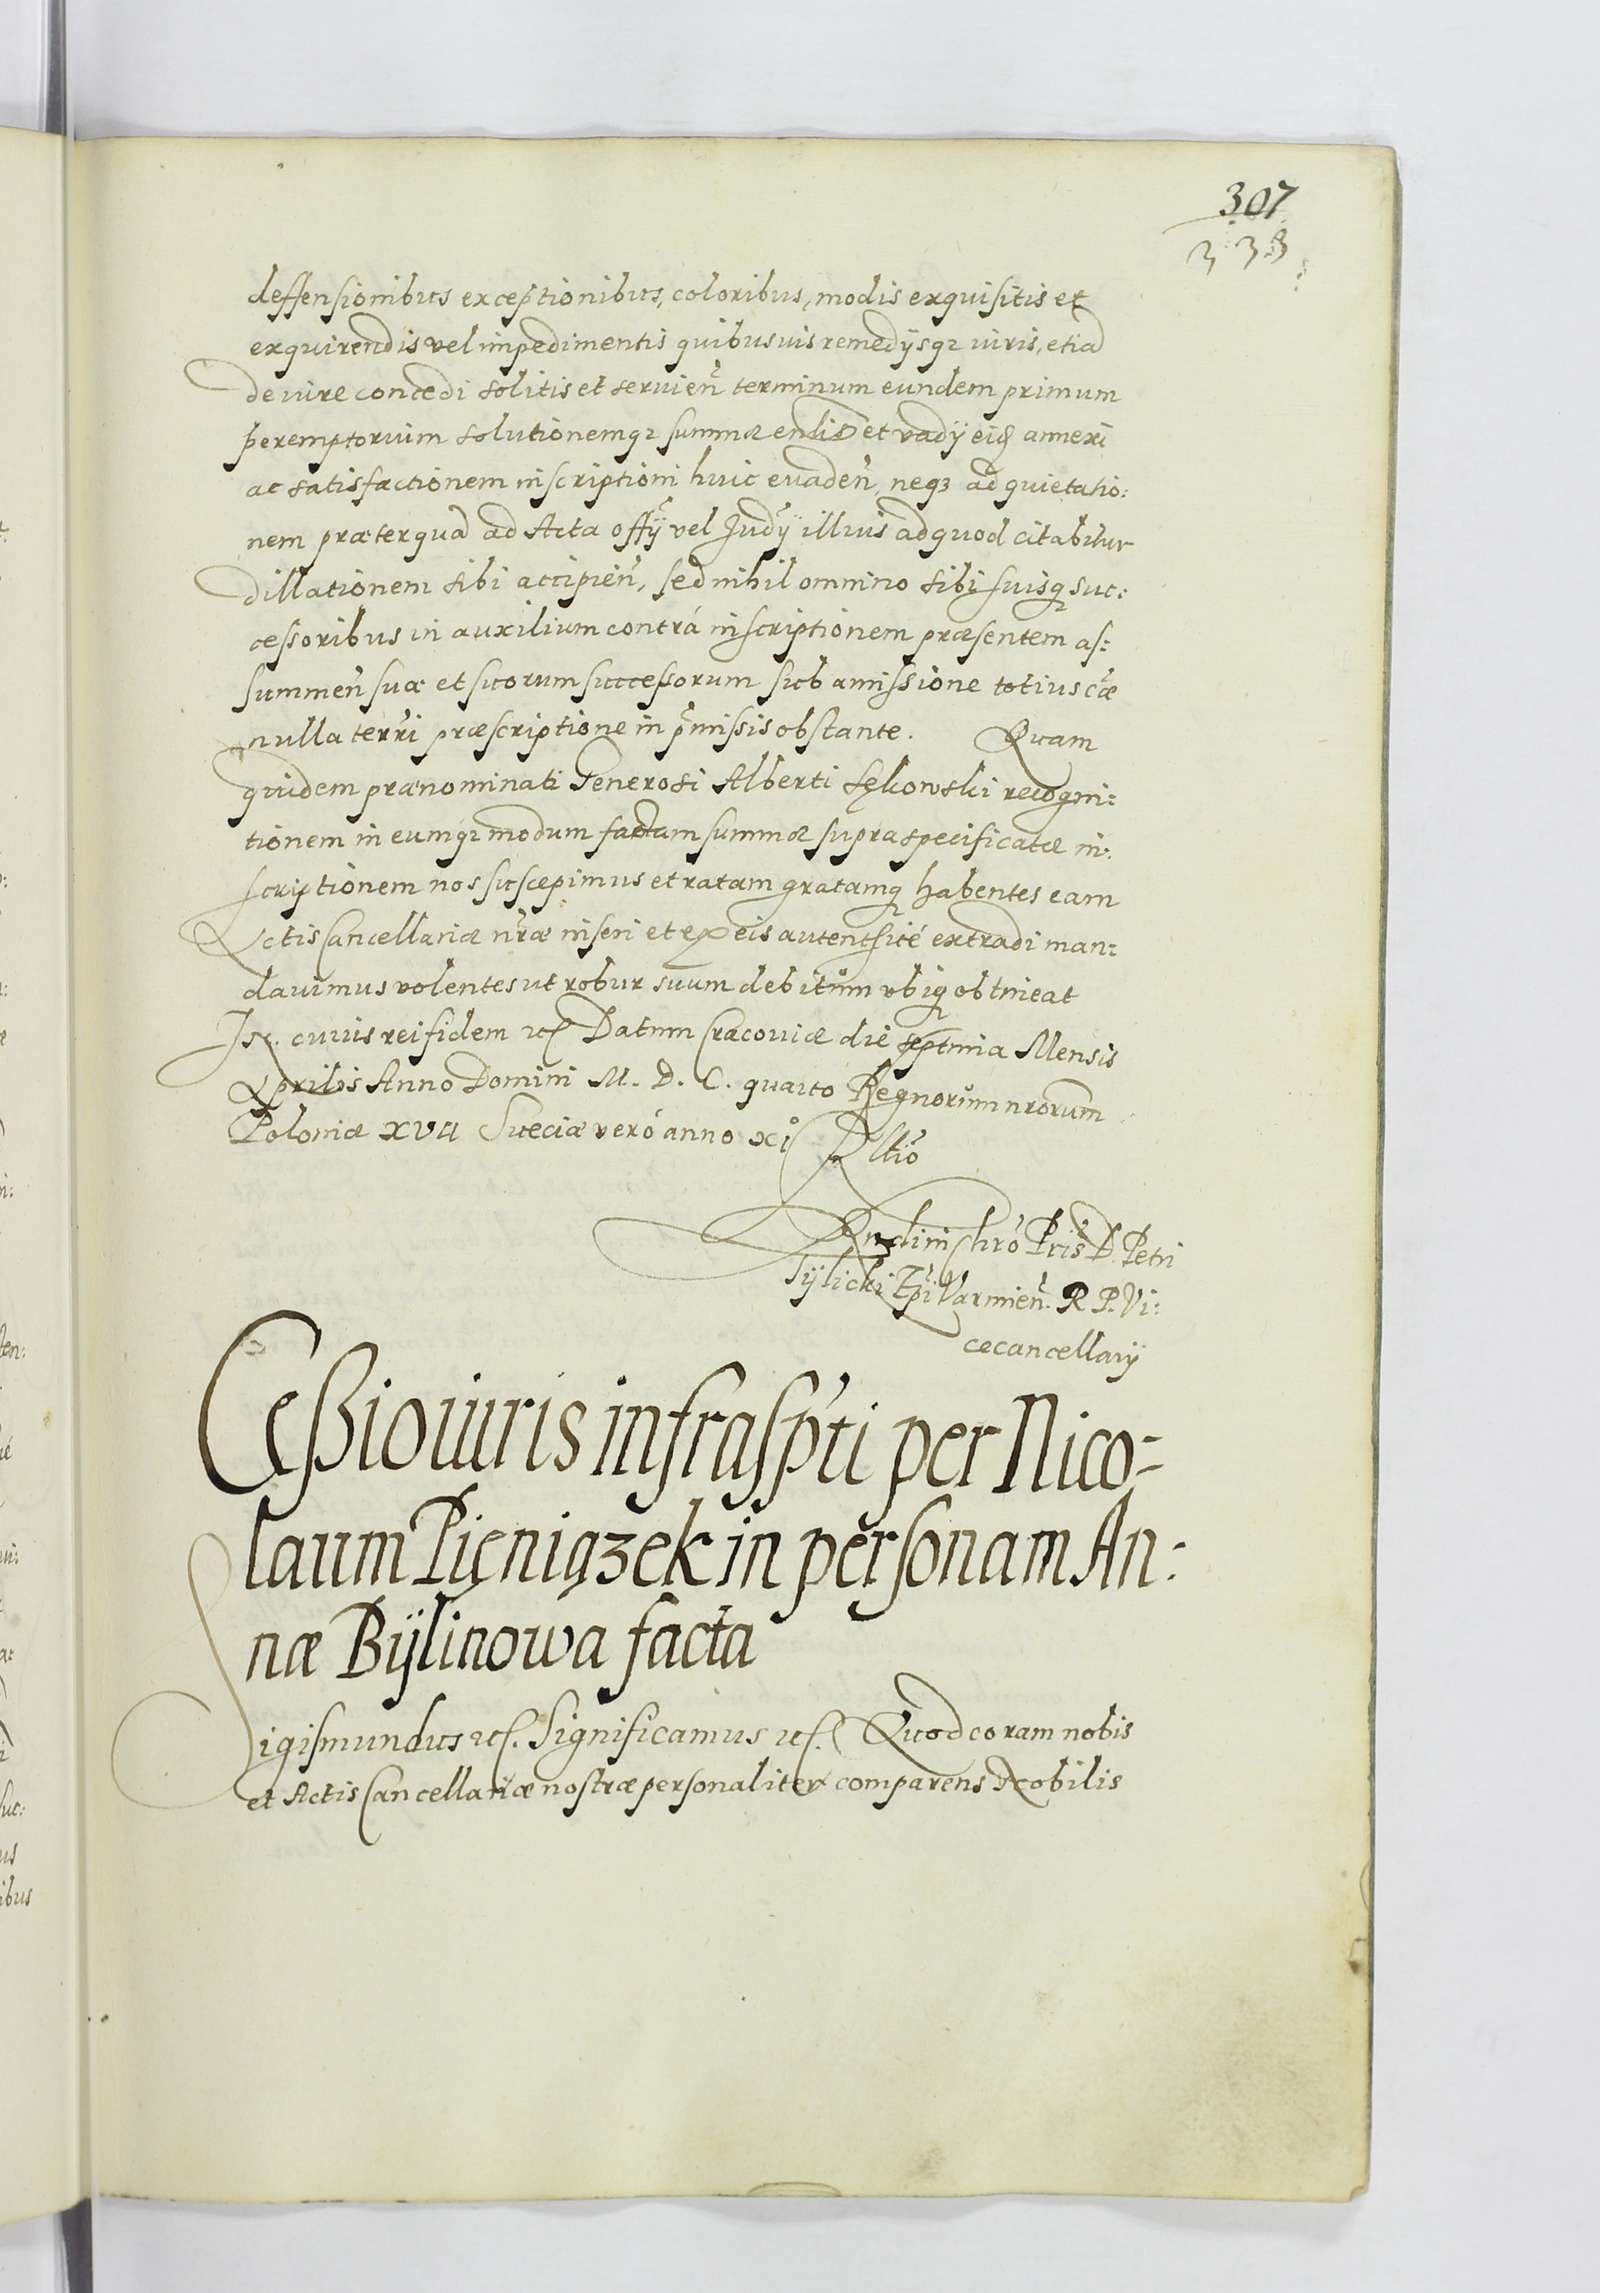 307
338
deffensionibus exceptionibus, coloribus, modis exquisitis et
exquirendis vel impedimentis quibusuis remedijsq; iuris, etiā
de iure concedi solitis et seruien̄ terminum eundem primum
peremptorium solutionemq; summæ et vadij eid̄ annexi
ac satisfactionem inscriptioni huic euaden̄, neq3 ad quietatio:
nem præterquā ad Acta offy̆ vel Judy̆ illius ad quod citabitur
dillationem sibi accipien̄, sed nihil omnino sibi suisq; suc:
cessoribus in auxilium contrá inscriptionem præsentem as:
summen̄ suæ et suorum successorum sub amissione totius cæ
nulla terrī præscriptione in p̄missis obstante. Quam
quidem prænominati Generosi Alberti Sękowski recogni:
tionem in eumq; modum factam summæ supra specificatæ in:
scriptionem nos suscepimus et ratam gratamq; habentes eam
Actis Cancellariæ nr̄æ inseri et ex eis autenthicé extradi man:
dauimus volentes ut robur suum debitum vbiq; obtineat
In cuius rei fidem etc Datum Cracouiæ die septima Mensis
Aprilis Anno Domini M. D. C. quarto Regnorum nrorum
Poloniæ XVII Sueciæ veró anno xi Rltio
Rndi in Chro Pris D. Petri
Tylicki Epi Varmien̄. R. P. Vi:
cecancellarij
Ceßio iuris infrasp'ti per Nico-
laum Pięniązek in personam An:
næ Bÿlinowa facta
Sigismundus etc. Significamus etc. Quod coram nobis
et Actis Cancellariæ nostræ personaliter comparens Nobilis